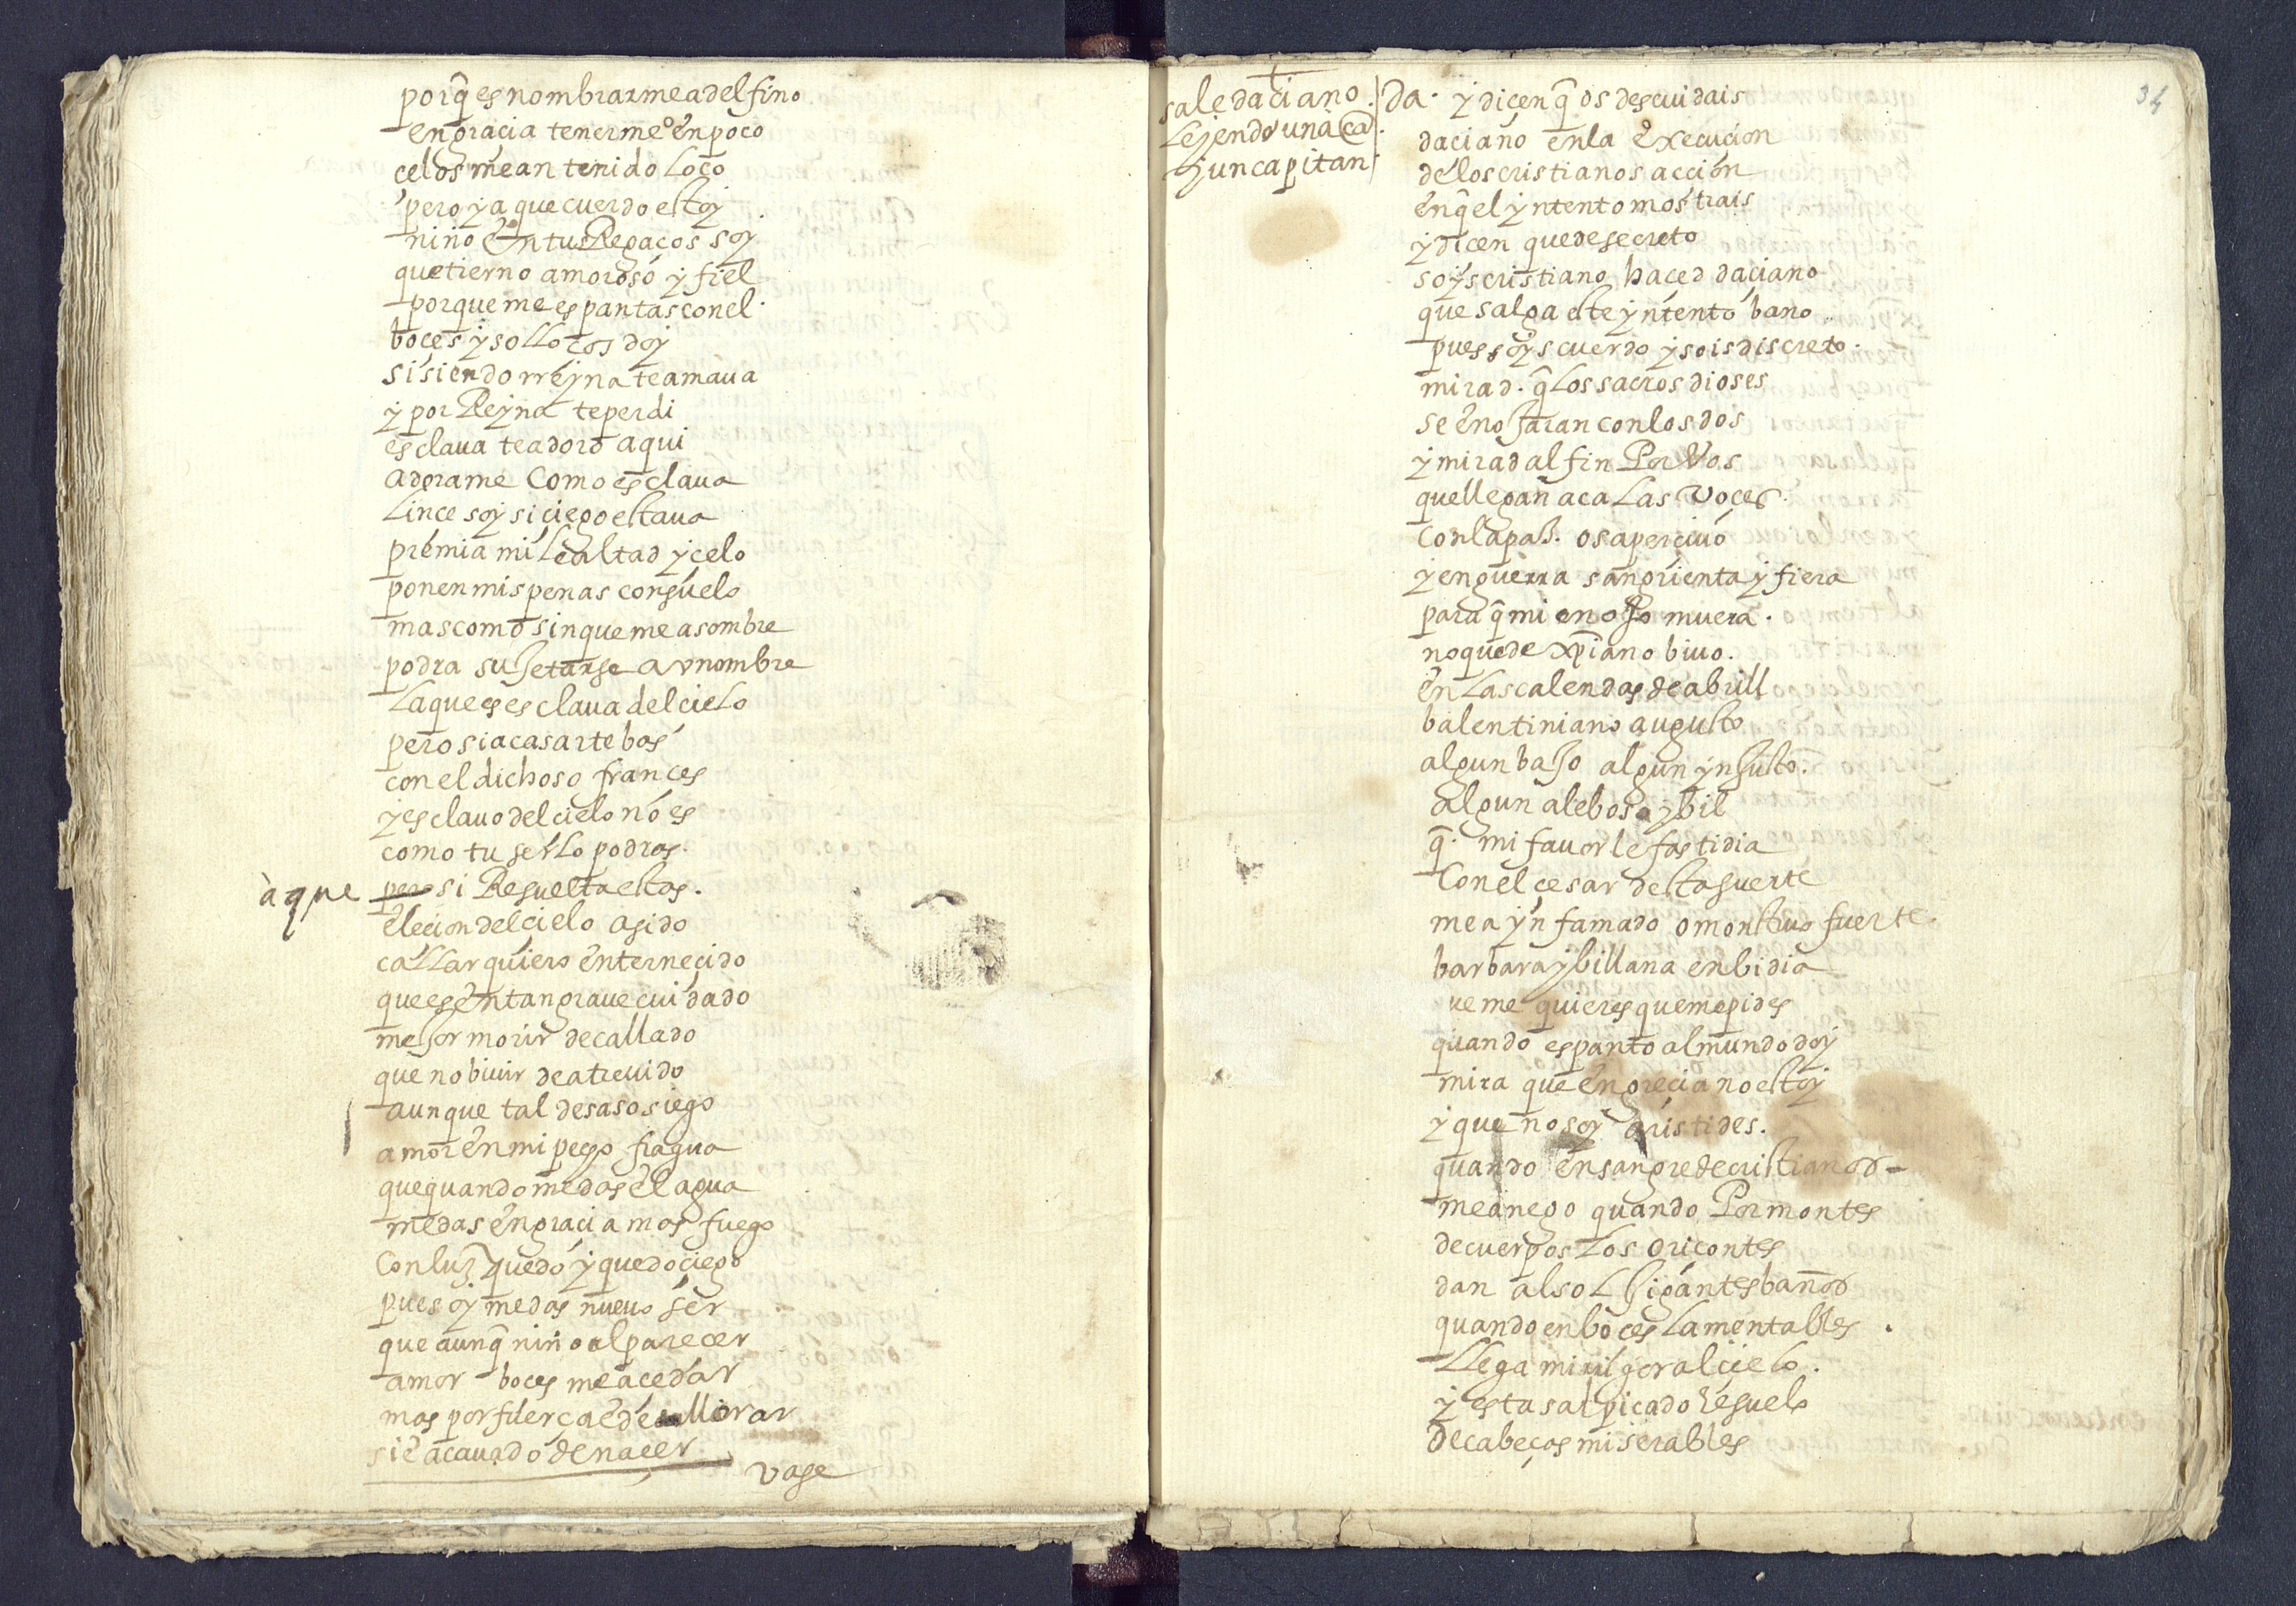 porq̃ es nombrarme a delfino
en gracia tenerme en poco
celos me an tenido loco
pero ya que cuerdo estoy
niño en tus Regaços soy
que tierno amoroso y fiel
porque me espantas con el
boçes y solloços doy
si siendo rreyna te amaua
y por Reyna te perdi
esclaua te adoro aqui
adorame Como esclaua
Lince soy si ciego estaua
premia mi Lealtad y celo
ponen mis penas consuelo
mas como sin que me asombre
podra sujetarse a vn ombre
La que es esclaua del cielo
pero si a casarte bas
con el dichoso frances
y esclauo del cielo no es
como tu serlo podras.
à que pero si Resuelta estas.
elecion del cielo a sido
callar quiero enternecido
que es en tan graue cuidado
mejor morir de callado
que no biuir de atreuido
aunque tal desasosiego
amor en mi pego fragua
que quando me das el agua
me das en gracia mas fuego
Con luz quedo y quedo ciego
pues oy me das nueuo ser
que aunq̃ niño al parecer
amor boces me a ce dar
mas por fuerça e de llorar
si e acauado de nacer
vase
34
sale daciano
leyendo una ca
y un capitan
Da. y diçen q̃ os descuidais
daciano en la execucion
de los cristianos accion
en q̃ el yntento mostrais
y dicen que de secreto
soys cristiano haced daciano
que salga este yntento bano
pues soys cuerdo y sois discreto.
mirad. q̃ los sacros dioses
se enojaran con los dos
y mirad al fin Por Vos
que llegan aca Las voçes.
Con la pas. os aperciuo
y en guerra sangrienta y fiera
para q̃ mi enojo muera.
no quede xp̃iano biuo.
en Las calendas de abrill
balentiniano augusto
algun bajo algun ynjusto.
algun aleboso y bil
q̃. mi fauor le fastidia
Con el çesar desta suerte
me a ynfamado o monstruo fuerte
barbara y billana enbidia
ue me quieres que me pides
quando espanto al mundo doy
mira que en grecia no estoy
y que no soy aristides.
quando en sangre de cristianos
me anego quando Por montes
de cuerpos Los oriçontes
dan al sol jigantes baños
quando en boçes Lamentables.
LLega mi rigor al cielo.
y esta salpicado el suelo
De cabeças miserables